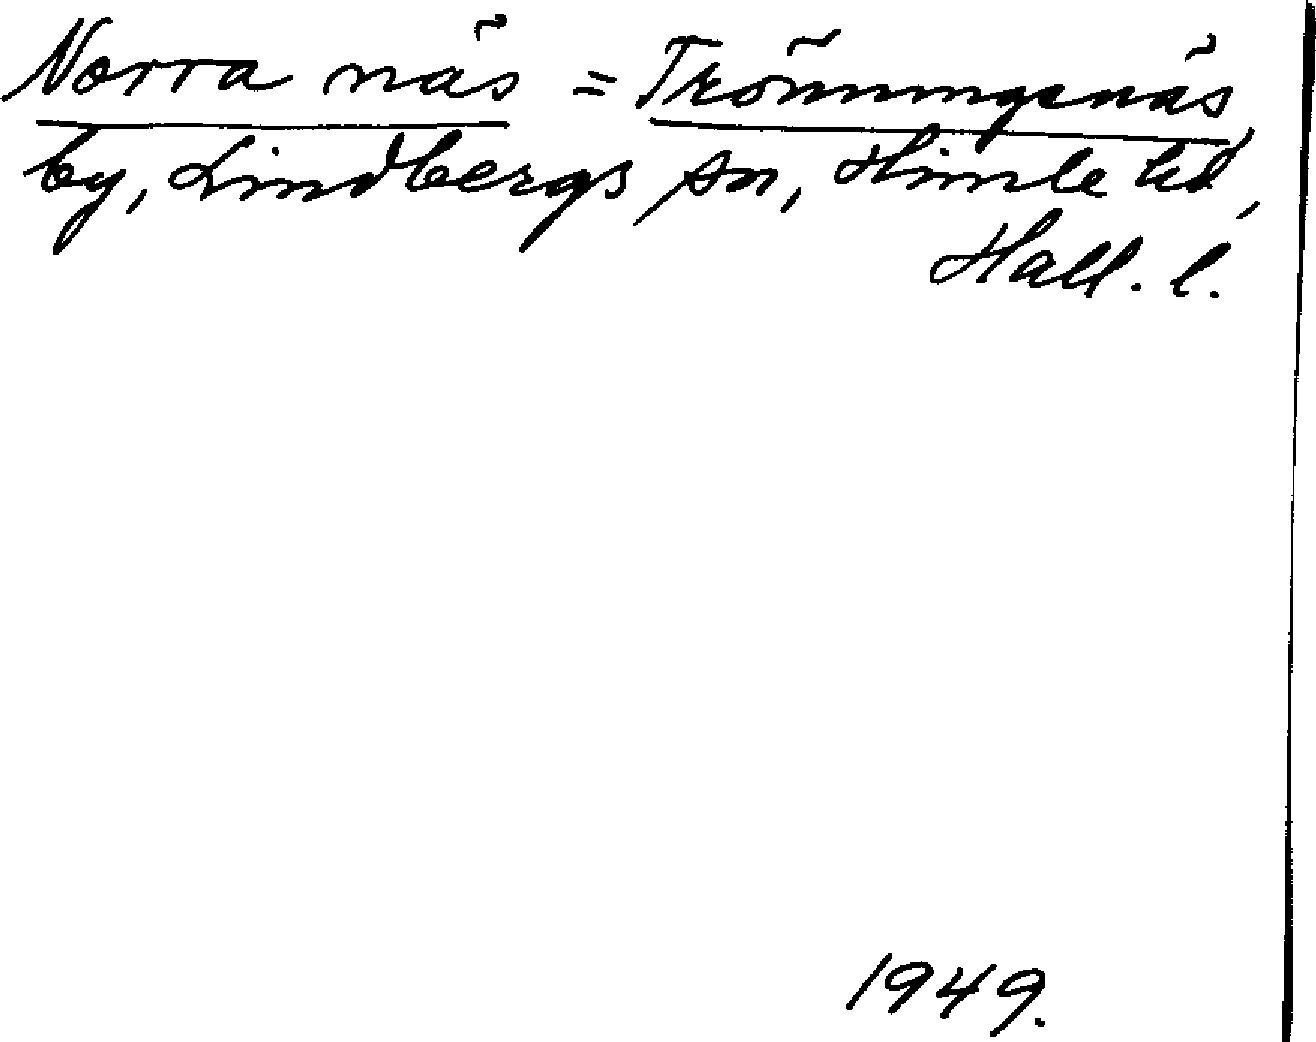 Norra näs = Trönningenäs
by, Lindbergs sn, Himle hd,
Hall. l.
1949.